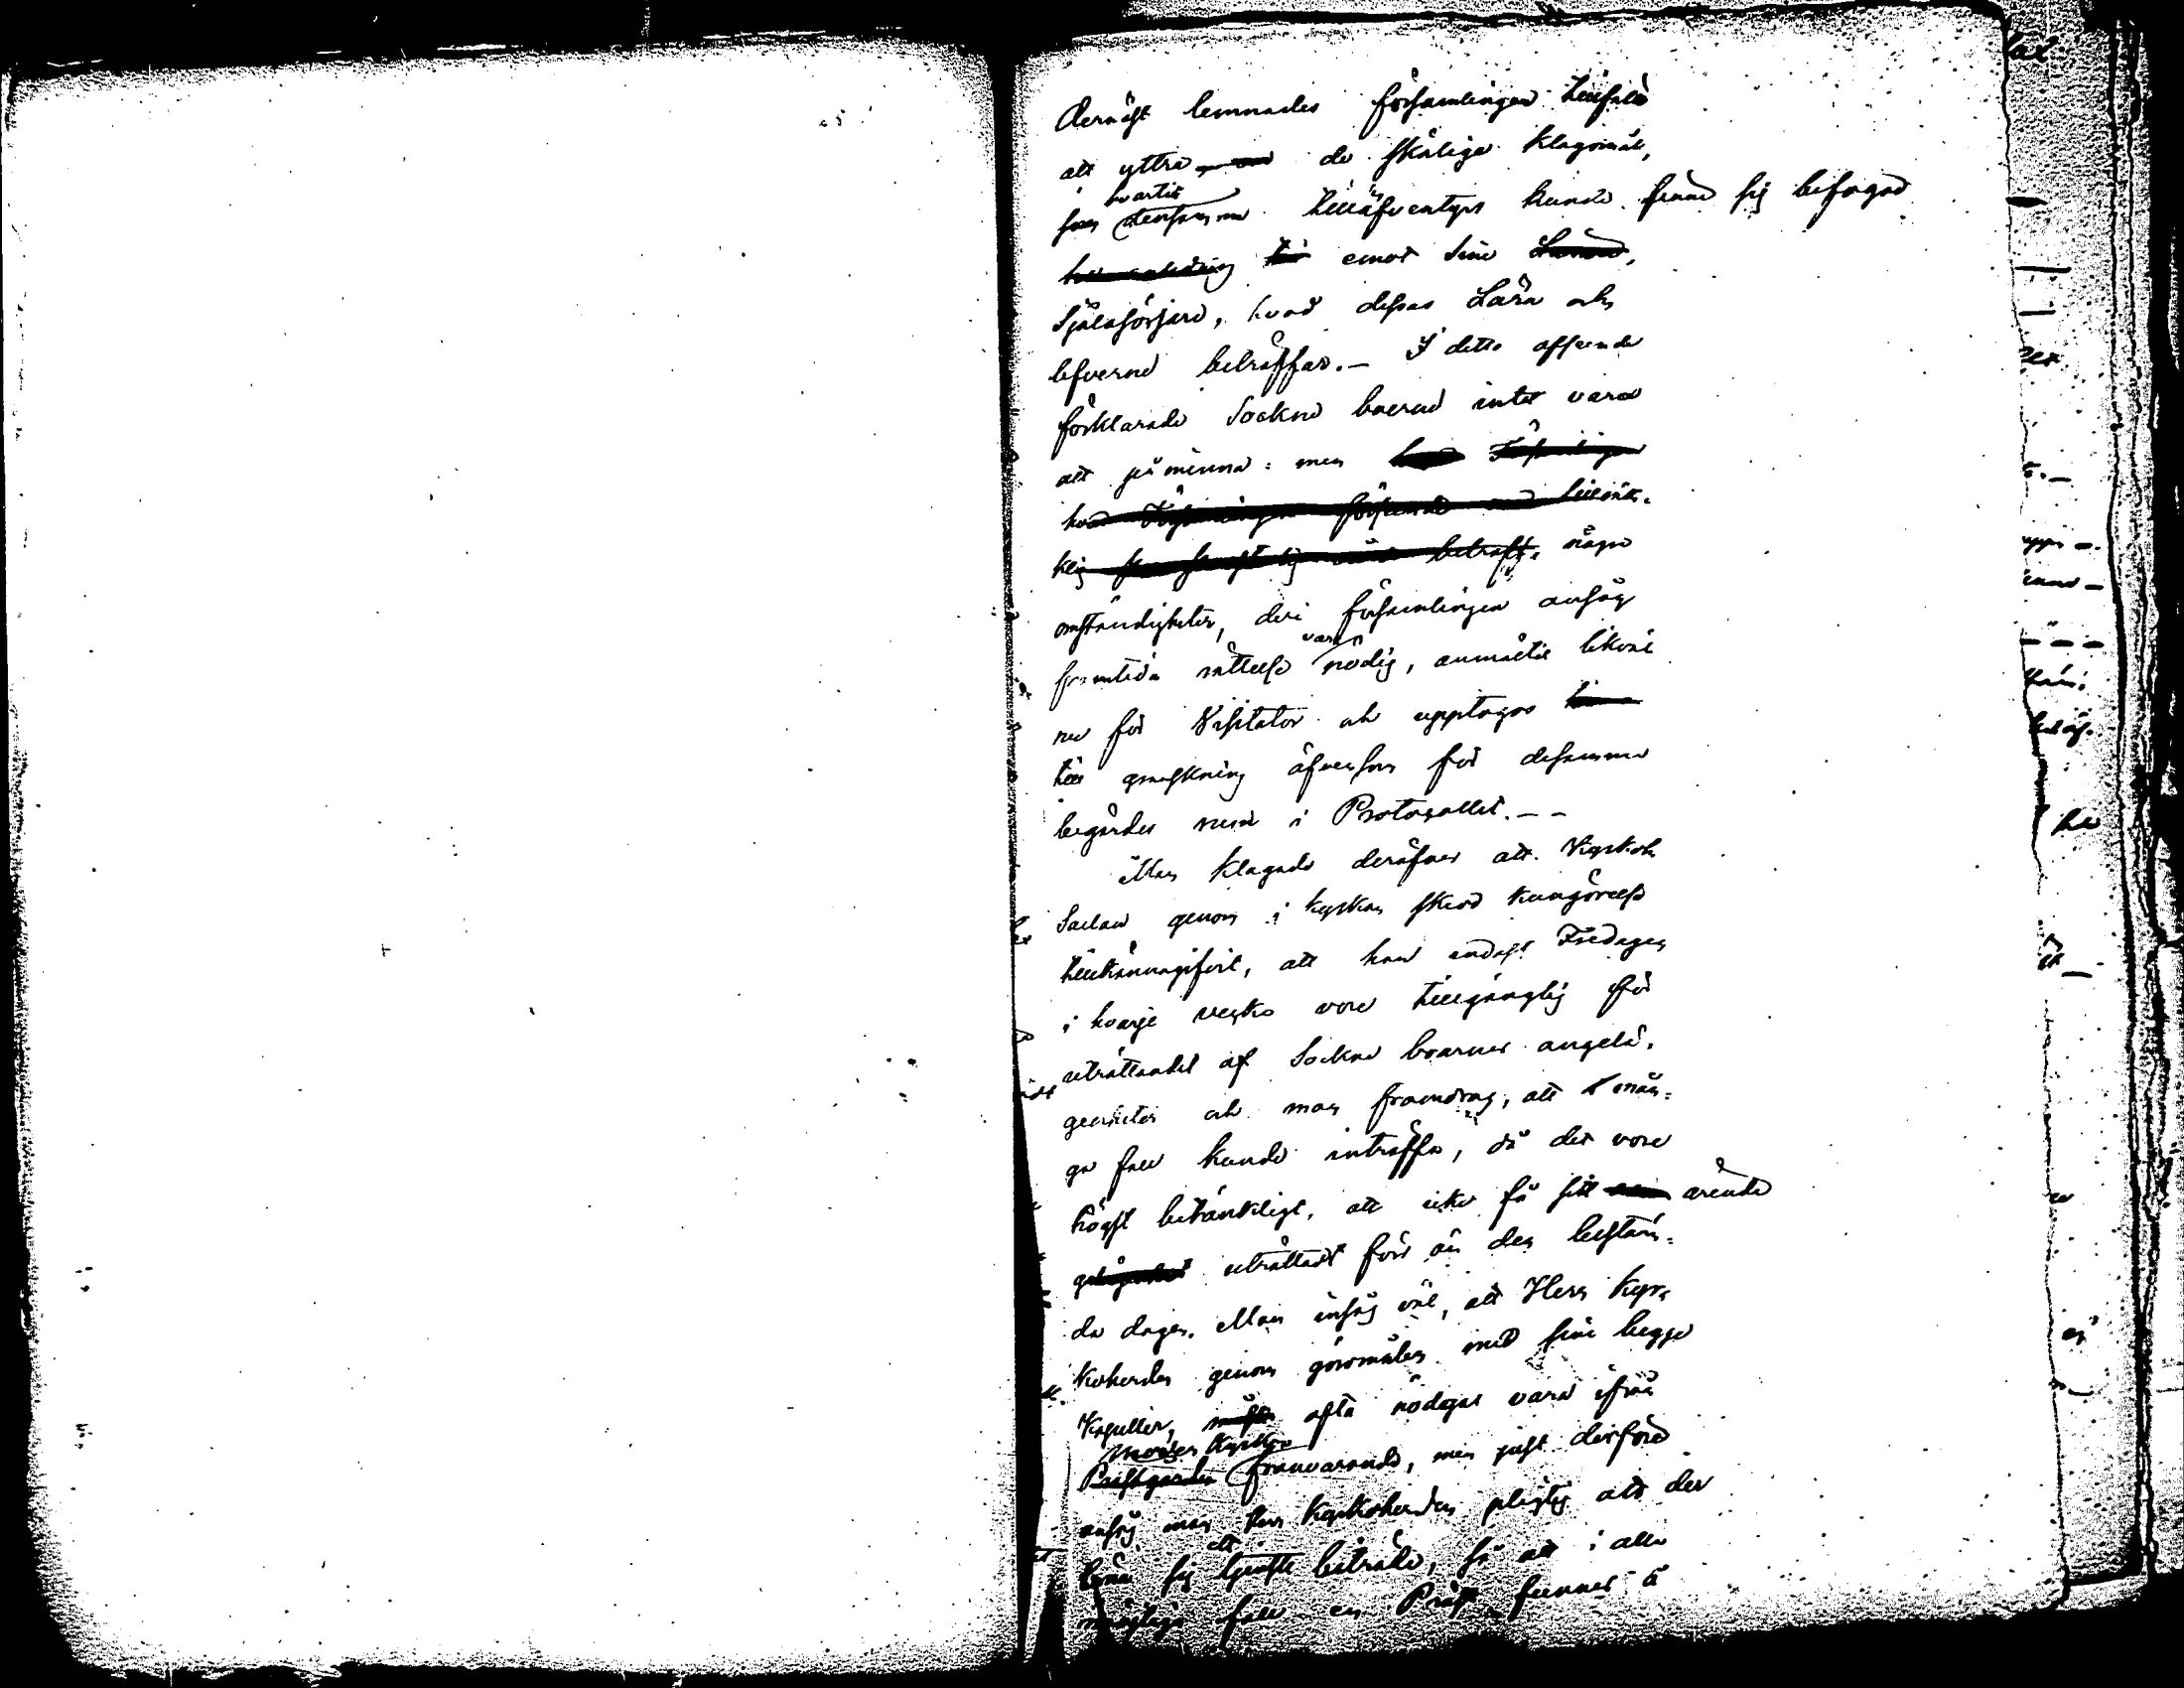 Dernäst lemnades församlingen tillfälle
att yttra de skälige klagomål,
hvartill
som densamma tilläfventyrs kunde finna sig befogad
emot sine
Själasörjare, hvad dessas Lära och
lefverne beträffar. — I detta afseende
förklarade Sockne boerne intet vara
att påminna: men
hvad
några
omständigheter, deri församlingen ansåg
vara
framtida rättelse nödig, anmältes likväl
nu för Visitator och upptogos
till granskning äfvensom för desamma
begärdes rum i Protocollet. — —
Man klagade deröfver att Kyrkoh.
genom i kyrkan skedd kungörelse
tillkännagifvit, att han endast Fredagen
i hvarje vecka vore tillgänglig för
uträttandet af Sockne boarnes angelä-
genheter och man framdrog, att mån-
ga fall kunde inträffa, då det vore
högst betänkligt, att icke få sitt ärende
uträttadt förr än den bestäm-
da dagen. Man insåg väl, att Herr Kyr-
koherden genom göromålen med sine begge
Kapeller, ofta nödgas vara ifrån
moder Kyrkan
Prestgården frånvarande, men just derföre
ansåg man Herr Kyrkoherden pligtig att der
att
sig biträde, så att i alla
möjliga fall en Präst funnes å